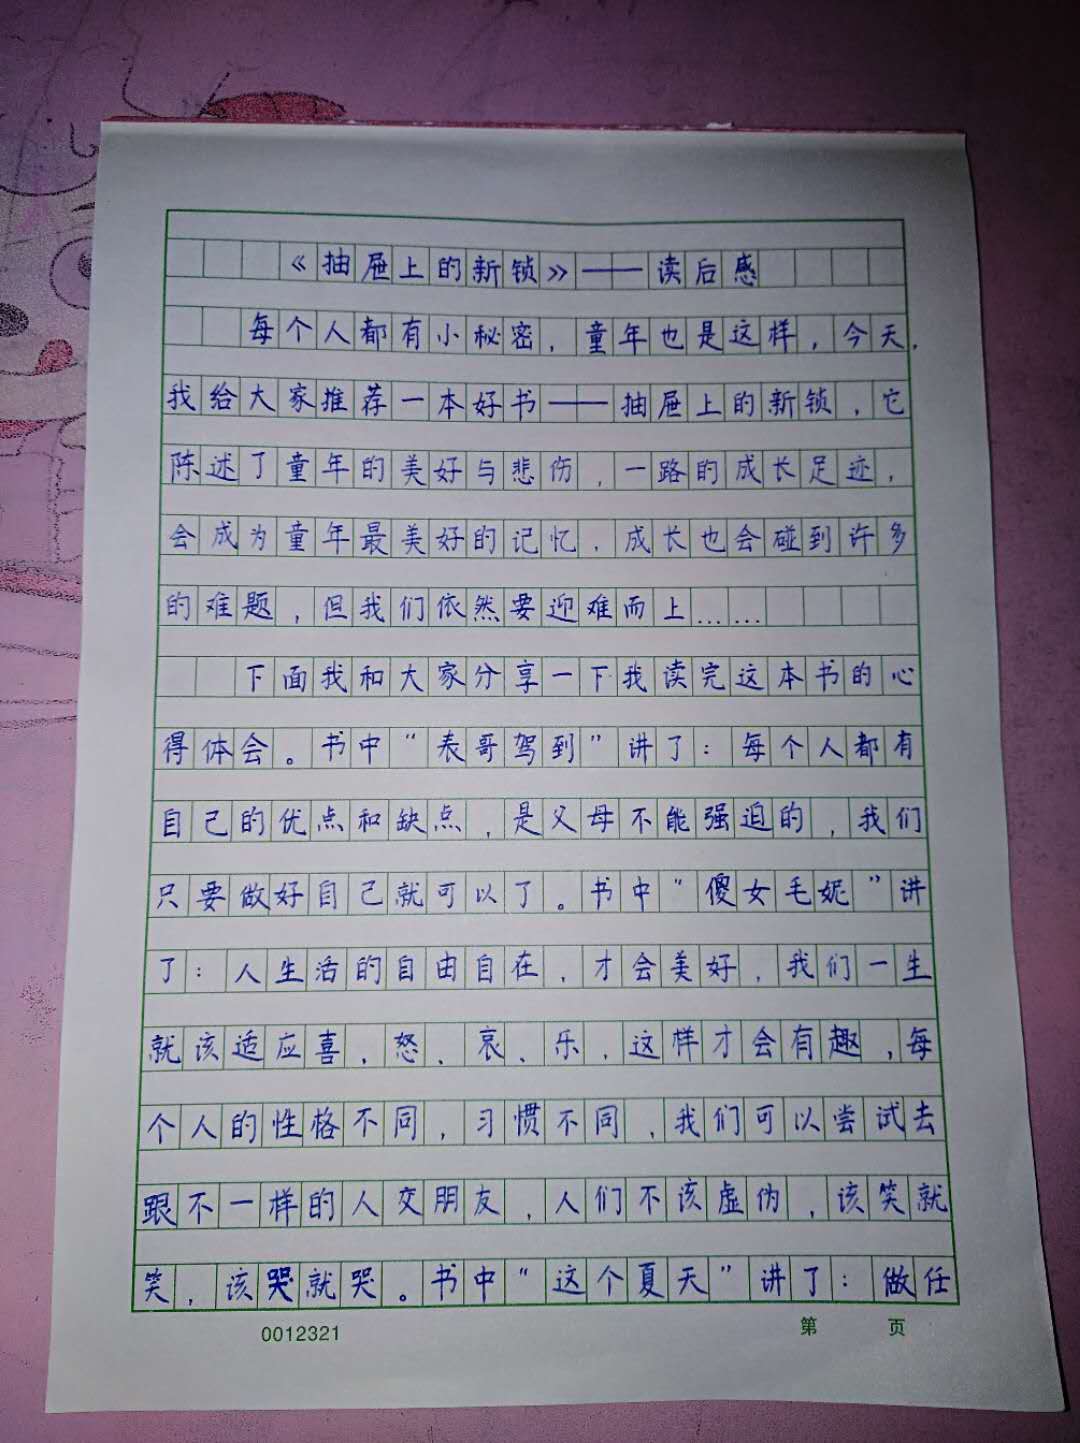 《抽屉上的新锁》——读后感
每个人都有小秘密，童年也是这样，今天，
我给大家推荐一本好书——抽屉上的新锁，它
陈述了童年的美好与悲伤，一路的成长足迹，
会成为童年最美好的记忆，成长也会碰到许多
的难题，但我们依然要迎难而上……
下面我和大家分享一下我读完这本书的心
得体会。书中“表哥驾到”讲了：每个人都有
自己的优点和缺点，是父母不能强迫的，我们
只要做好自己就可以了。书中“傻女毛妮”讲
了：人生活的自由自在，才会美好，我们一生
就该适应喜、怒、哀、乐，这样才会有趣，每
个人的性格不同，习惯不同，我们可以尝试去
跟不一样的人交朋友，人们不该虚伪，该笑就
笑，该哭就哭。书中“这个夏天”讲了：做任
0012321 第 页